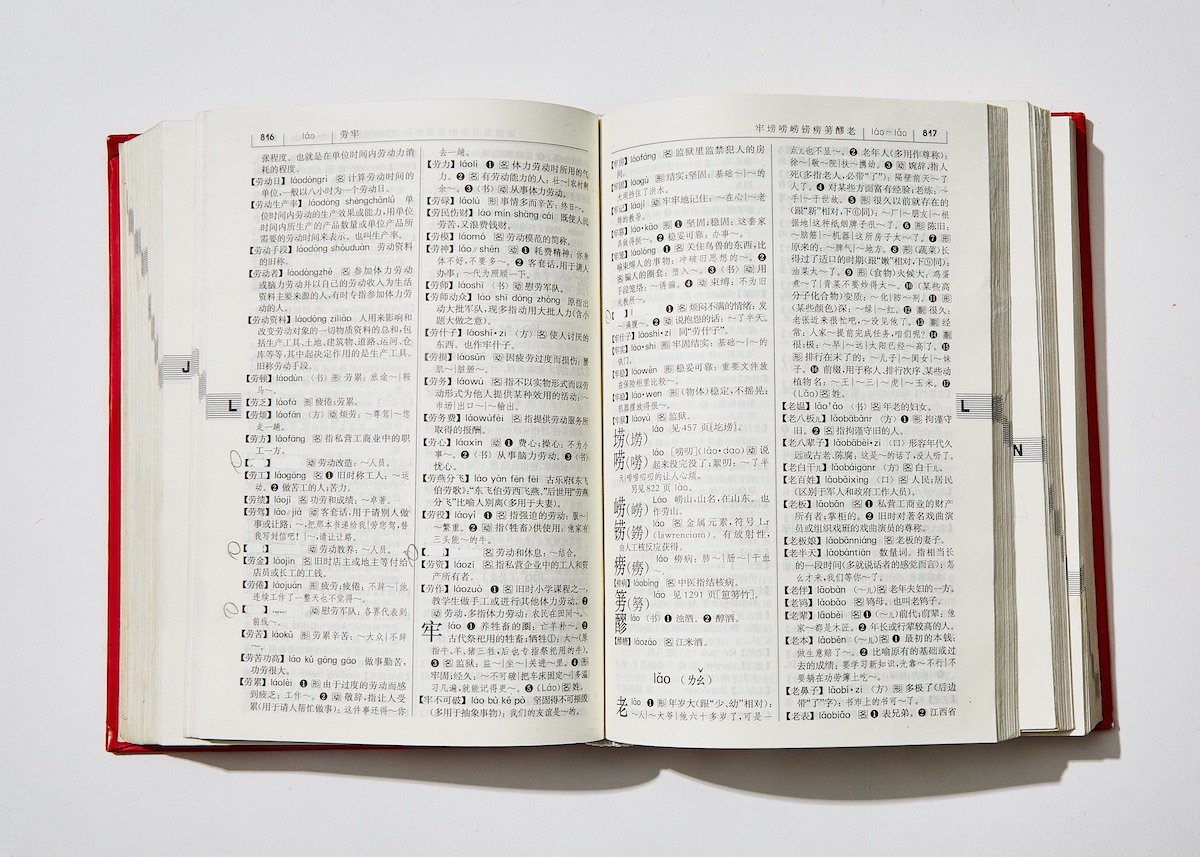 816 láo 劳牢
张程度。也就是在单位时间内劳动力消
耗的程度。
【劳动日】láodòngrì 名 计算劳动时间的
单位,一般以八小时为一个劳动日。
【劳动生产率】láodòng shēngchǎnlǜ 单
位时间内劳动的生产效果或能力,用单位
时间内所生产的产品数量或单位产品所
需要的劳动时间来表示。也叫生产率。
【劳动手段】láodòng shǒuduàn 劳动资料
的旧称。
【劳动者】láodòngzhě 名 参加体力劳动
或脑力劳动并以自己的劳动收入为生活
资料主要来源的人,有时专指参加体力劳
动的人。
【劳动资料】láodòng zīliào 人用来影响和
改变劳动对象的一切物质资料的总和,包
括生产工具、土地、建筑物、道路、运河、仓
库等等,其中起决定作用的是生产工具。
旧称劳动手段。
【劳顿】láodùn 〈书〉形 劳累:旅途~|鞍
马~。
【劳乏】láofá 形 疲倦;劳累。
【劳烦】láofán 〈方〉动 烦劳:~尊驾|~您
走一趟。
【劳方】láofāng 名 指私营工商业中的职
工一方。
【 】 动 劳动改造:~人员。
【劳工】láogōng 名 ❶ 旧时称工人:~运
动。❷ 做苦工的人;苦力。
【劳绩】láojì 名 功劳和成绩:~卓著。
【劳驾】láo//jià 动 客套话,用于请别人做
事或让路:~,把那本书递给我|劳您驾,替
我写封信吧!|~,请让让路。
【 】 动 劳动教养:~人员。
【劳金】láojīn 名 旧时店主或地主等付给
店员或长工的工钱。
【劳倦】láojuàn 形 疲劳;疲倦:不辞~|他
连续工作了一整天也不觉得~。
【 】 动 慰劳军队:各界代表到
前线~。
【劳苦】láokǔ 形 劳累辛苦:~大众|不辞
~。
【劳苦功高】láo kǔ gōng gāo 做事勤苦,
功劳很大。
【劳累】láolèi ❶ 形 由于过度的劳动而感
到疲乏:工作~。❷ 动 敬辞,指让人受
累(用于请人帮忙做事):这件事还得~你
去一趟。
【劳力】láolì ❶ 名 体力劳动时所用的气
力。❷ 名 有劳动能力的人:壮~|农村剩
余~。❸〈书〉动 从事体力劳动。
【劳碌】láolù 形 事情多而辛苦:终日~。
【劳民伤财】láo mín shāng cái 既使人民
劳苦,又浪费钱财。
【劳模】láomó 名 劳动模范的简称。
【劳神】láo//shén 动 ❶ 耗费精神:你身
体不好,不要多~。❷ 客套话,用于请人
办事:~代为照顾一下。
【劳师】láoshī 〈书〉动 慰劳军队。
【劳师动众】láo shī dòng zhòng 原指出
动大批军队,现多指动用大批人力(含小
题大做之意)。
【劳什子】láoshí·zi 〈方〉名 使人讨厌的
东西。也作牢什子。
【劳损】láosǔn 动 因疲劳过度而损伤:腰
肌~|脏腑~。
【劳务】láowù 名 指不以实物形式而以劳
动形式为他人提供某种效用的活动:~
市场|出口~|~输出。
【劳务费】láowùfèi 名 指提供劳动服务所
取得的报酬。
【劳心】láoxīn 动 ❶ 费心;操心:不为小
事~。❷〈书〉从事脑力劳动。❸〈书〉
忧心。
【劳燕分飞】láo yàn fēn fēi 古乐府《东飞
伯劳歌》:“东飞伯劳西飞燕。”后世用“劳燕
分飞”比喻人别离(多用于夫妻)。
【劳役】láoyì ❶ 名 指强迫的劳动:服~
|~繁重。❷ 动 指(牲畜)供使用:他家有
三头能~的牛。
【 】 名 劳动和休息:~结合。
【劳资】láozī 名 指私营企业中的工人和资
产所有者。
【劳作】láozuò ❶ 名 旧时小学课程之一,
教学生做手工或进行其他体力劳动。❷
动 劳动,多指体力劳动:农民在田间~。
牢 láo ❶ 养牲畜的圈:亡羊补~。❷
古代祭祀用的牲畜;牺牲①:太~(原
指牛、羊、猪三牲,后也专指祭祀用的牛)。
❸ 名 监狱:监~|坐~|关进~里。❹ 形
牢固;经久:~不可破|把车床固定~|多温
习几遍,就能记得更~。❺ (Láo) 名 姓。
【牢不可破】láo bù kě pò 坚固得不可摧毁
(多用于抽象事物):我们的友谊是~的。
J
L
牢崂唠崂铹痨䓖醪老 láo—lǎo 817
【牢房】láofáng 名 监狱里监禁犯人的房
间。
【牢固】láogù 形 结实;坚固:基础~|~的
大坝挡住了洪水。
【牢记】láojì 动 牢牢地记住:~在心|~老
师的教导。
【牢靠】láo·kào 形 ❶ 坚固;稳固:这套家
具做得挺~。❷ 稳妥可靠:办事~。
【牢笼】láolóng ❶ 名 关住鸟兽的东西,比
喻束缚人的事物:冲破旧思想的~。❷
名 骗人的圈套:堕入~。❸〈书〉动 用
手段笼络:~诱骗。❹ 动 束缚:不为旧
礼教所~。
【 】 ❶ 名 烦闷不满的情绪:发
~|满腹~。❷ 动 说抱怨的话:~了半天。
【牢什子】láoshí·zi 同“劳什子”。
【牢实】láo·shi 形 牢固结实:基础~|~的
铁门。
【牢稳】láowěn 形 稳妥可靠:重要文件放
在保险柜里比较~。
【牢稳】láo·wen 形 (物体)稳定,不摇晃:
机器摆放得很~。
【牢狱】láoyù 名 监狱。
捞(撈) láo 见 457 页[圪捞]。
唠(嘮) láo [唠叨](láo·dao) 动 说
起来没完没了;絮叨:~了半天|
唠唠叨叨的让人心烦。
另见 822 页 lào。
崂(嶗) Láo 崂山,山名,在山东。也
作劳山。
铹(鐒) láo 名 金属元素,符号 Lr
(lawrencium)。有放射性,
由人工核反应获得。
痨(癆) láo 痨病:肺~|肠~|干血
~。
【痨病】láobìng 名 中医指结核病。
䓖(藭) láo 见 1291 页[䓖竹]。
醪 láo 〈书〉❶ 浊酒。❷ 醇酒。
【醪糟】láozāo 名 江米酒。
lǎo (ㄌㄠˇ)
老 lǎo ❶ 形 年岁大(跟“少、幼”相对):
~人|~大爷|他六十多岁了,可是一
点儿也不显~。❷ 老年人(多用作尊称):
徐~|敬~院|扶~携幼。❸ 动 婉辞,指人
死(多指老人,必带“了”):隔壁前天~了
人了。❹ 对某些方面富有经验;老练:~
手|~于世故。❺ 形 很久以前就存在的
(跟“新”相对,下⑥同):~厂|~朋友|~根
据地|这种纸烟牌子很~了。❻ 形 陈旧:
~脑筋|~机器|这所房子太~了。❼ 形
原来的:~脾气|~地方。❽ 形 (蔬菜)长
得过了适口的时期(跟“嫩”相对,下⑨同):
油菜太~了。❾ 形 (食物)火候大:鸡蛋
煮~了|青菜不要炒得太~。❿ (某些高
分子化合物)变质:~化|防~剂。⓫ 形
(某些颜色)深:~绿|~红。⓬ 副 很久:
老张近来很忙吧,~没见他了。⓭ 副 经
常:人家~提前完成任务,咱们呢?⓮ 副
很;极:~早|~远|太阳已经~高了。⓯
形 排行在末了的:~儿子|~闺女|~妹
子。⓰ 前缀,用于称人、排行次序、某些动
植物名:~王|~三|~虎|~玉米。⓱
(Lǎo) 名 姓。
【老媪】lǎo'ǎo 〈书〉名 年老的妇女。
【老八板儿】lǎobābǎnr 〈方〉❶ 形 拘谨守
旧。❷ 名 指拘谨守旧的人。
【老八辈子】lǎobābèi·zi 〈口〉形容年代久
远或古老、陈腐:这是~的话了,没人听了。
【老白干儿】lǎobáigānr 〈方〉名 白干儿。
【老百姓】lǎobǎixìng 〈口〉名 人民;居民
(区别于军人和政府工作人员)。
【老板】lǎobǎn 名 ❶ 私营工商业的财产
所有者;掌柜的。❷ 旧时对著名戏曲演
员或组织戏班的戏曲演员的尊称。
【老板娘】lǎobǎnniáng 名 老板的妻子。
【老半天】lǎobàntiān 数量词。指相当长
的一段时间(多就说话者的感觉而言):怎
么才来,我们等你~了。
【老伴】lǎobàn (~儿)名 老年夫妇的一方。
【老鸨】lǎobǎo 名 鸨母。也叫老鸨子。
【老辈】lǎobèi (~儿)名 ❶ 前代;前辈:他
家~都是木匠。❷ 年长或行辈较高的人。
【老本】lǎoběn (~儿)名 ❶ 最初的本钱:
做生意赔了~。❷ 比喻原有的基础或过
去的成绩:要学习新知识,光靠~不行|不
要躺在功劳簿上吃~。
【老鼻子】lǎobí·zi 〈方〉形 多极了(后边
带“了”字):书市上的书可~了。
【老表】lǎobiǎo 名 ❶ 表兄弟。❷ 江西省
L
N